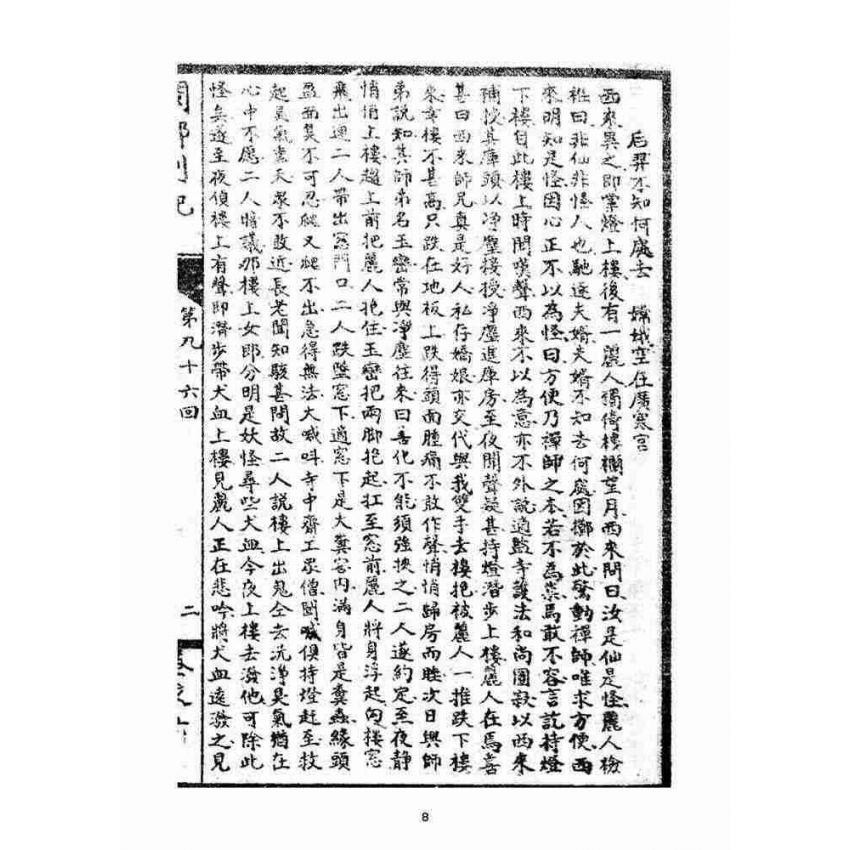 后羿不知何處去　嫦娥空在廣寒宮
西來異之即掌燈上樓後有一麗人獨倚樓欄望月西來問曰汝是仙是怪麗人檢
袵曰非仙非怪人也馳逐夫婿夫婿不知去何處因擲於此驚動禪師唯求方便西
來明知是怪因心正不以為怪曰方便乃禪師之本若不為祟焉敢不容言訖持燈
下樓自此樓上時聞嘆聲西來不以為意亦不外説適監寺護法和尚圓寂以西來
補授其庫頭以凈塵接授凈塵進庫房至夜聞聲疑甚持燈潛步上樓麗人在焉喜
甚曰西來師兄真是好人私仔嬌娘亦交代與我雙手去樓抱被麗人一推跌下樓
來幸樓不甚高只跌在地板上跌得頭面腫痛不敢作聲悄悄歸房而睡次日與師
弟説知其師弟名玉巒常與凈塵往來曰善化不能須強挾之二人遂約定至夜靜
悄悄上樓趨上前把麗人抱住玉巒把兩脚抱起扛至窓前麗人將身浮起向樓窓
飛出連二人帶出窓門口二人跌墜窓下適窓下是大糞窖内滿身皆是糞蟲緣頭
盈面莫不可忍爬又爬不出急得無法大喊呌寺中齋工眾僧聞喊俱持燈赶至救
起臭氣衝天眾不敢近長老聞知駭甚問故二人説樓上出鬼仝去洗淨臭氣猶在
心中不愿二人暗議那樓上女郎分明是妖怪尋些犬血今夜上樓去潑他可除此
怪矣遂至夜偵樓上有聲即潛步帶犬血上樓見麗人正在悲吟將犬血遠潑之見
閩都別記
第九十六回
二
8